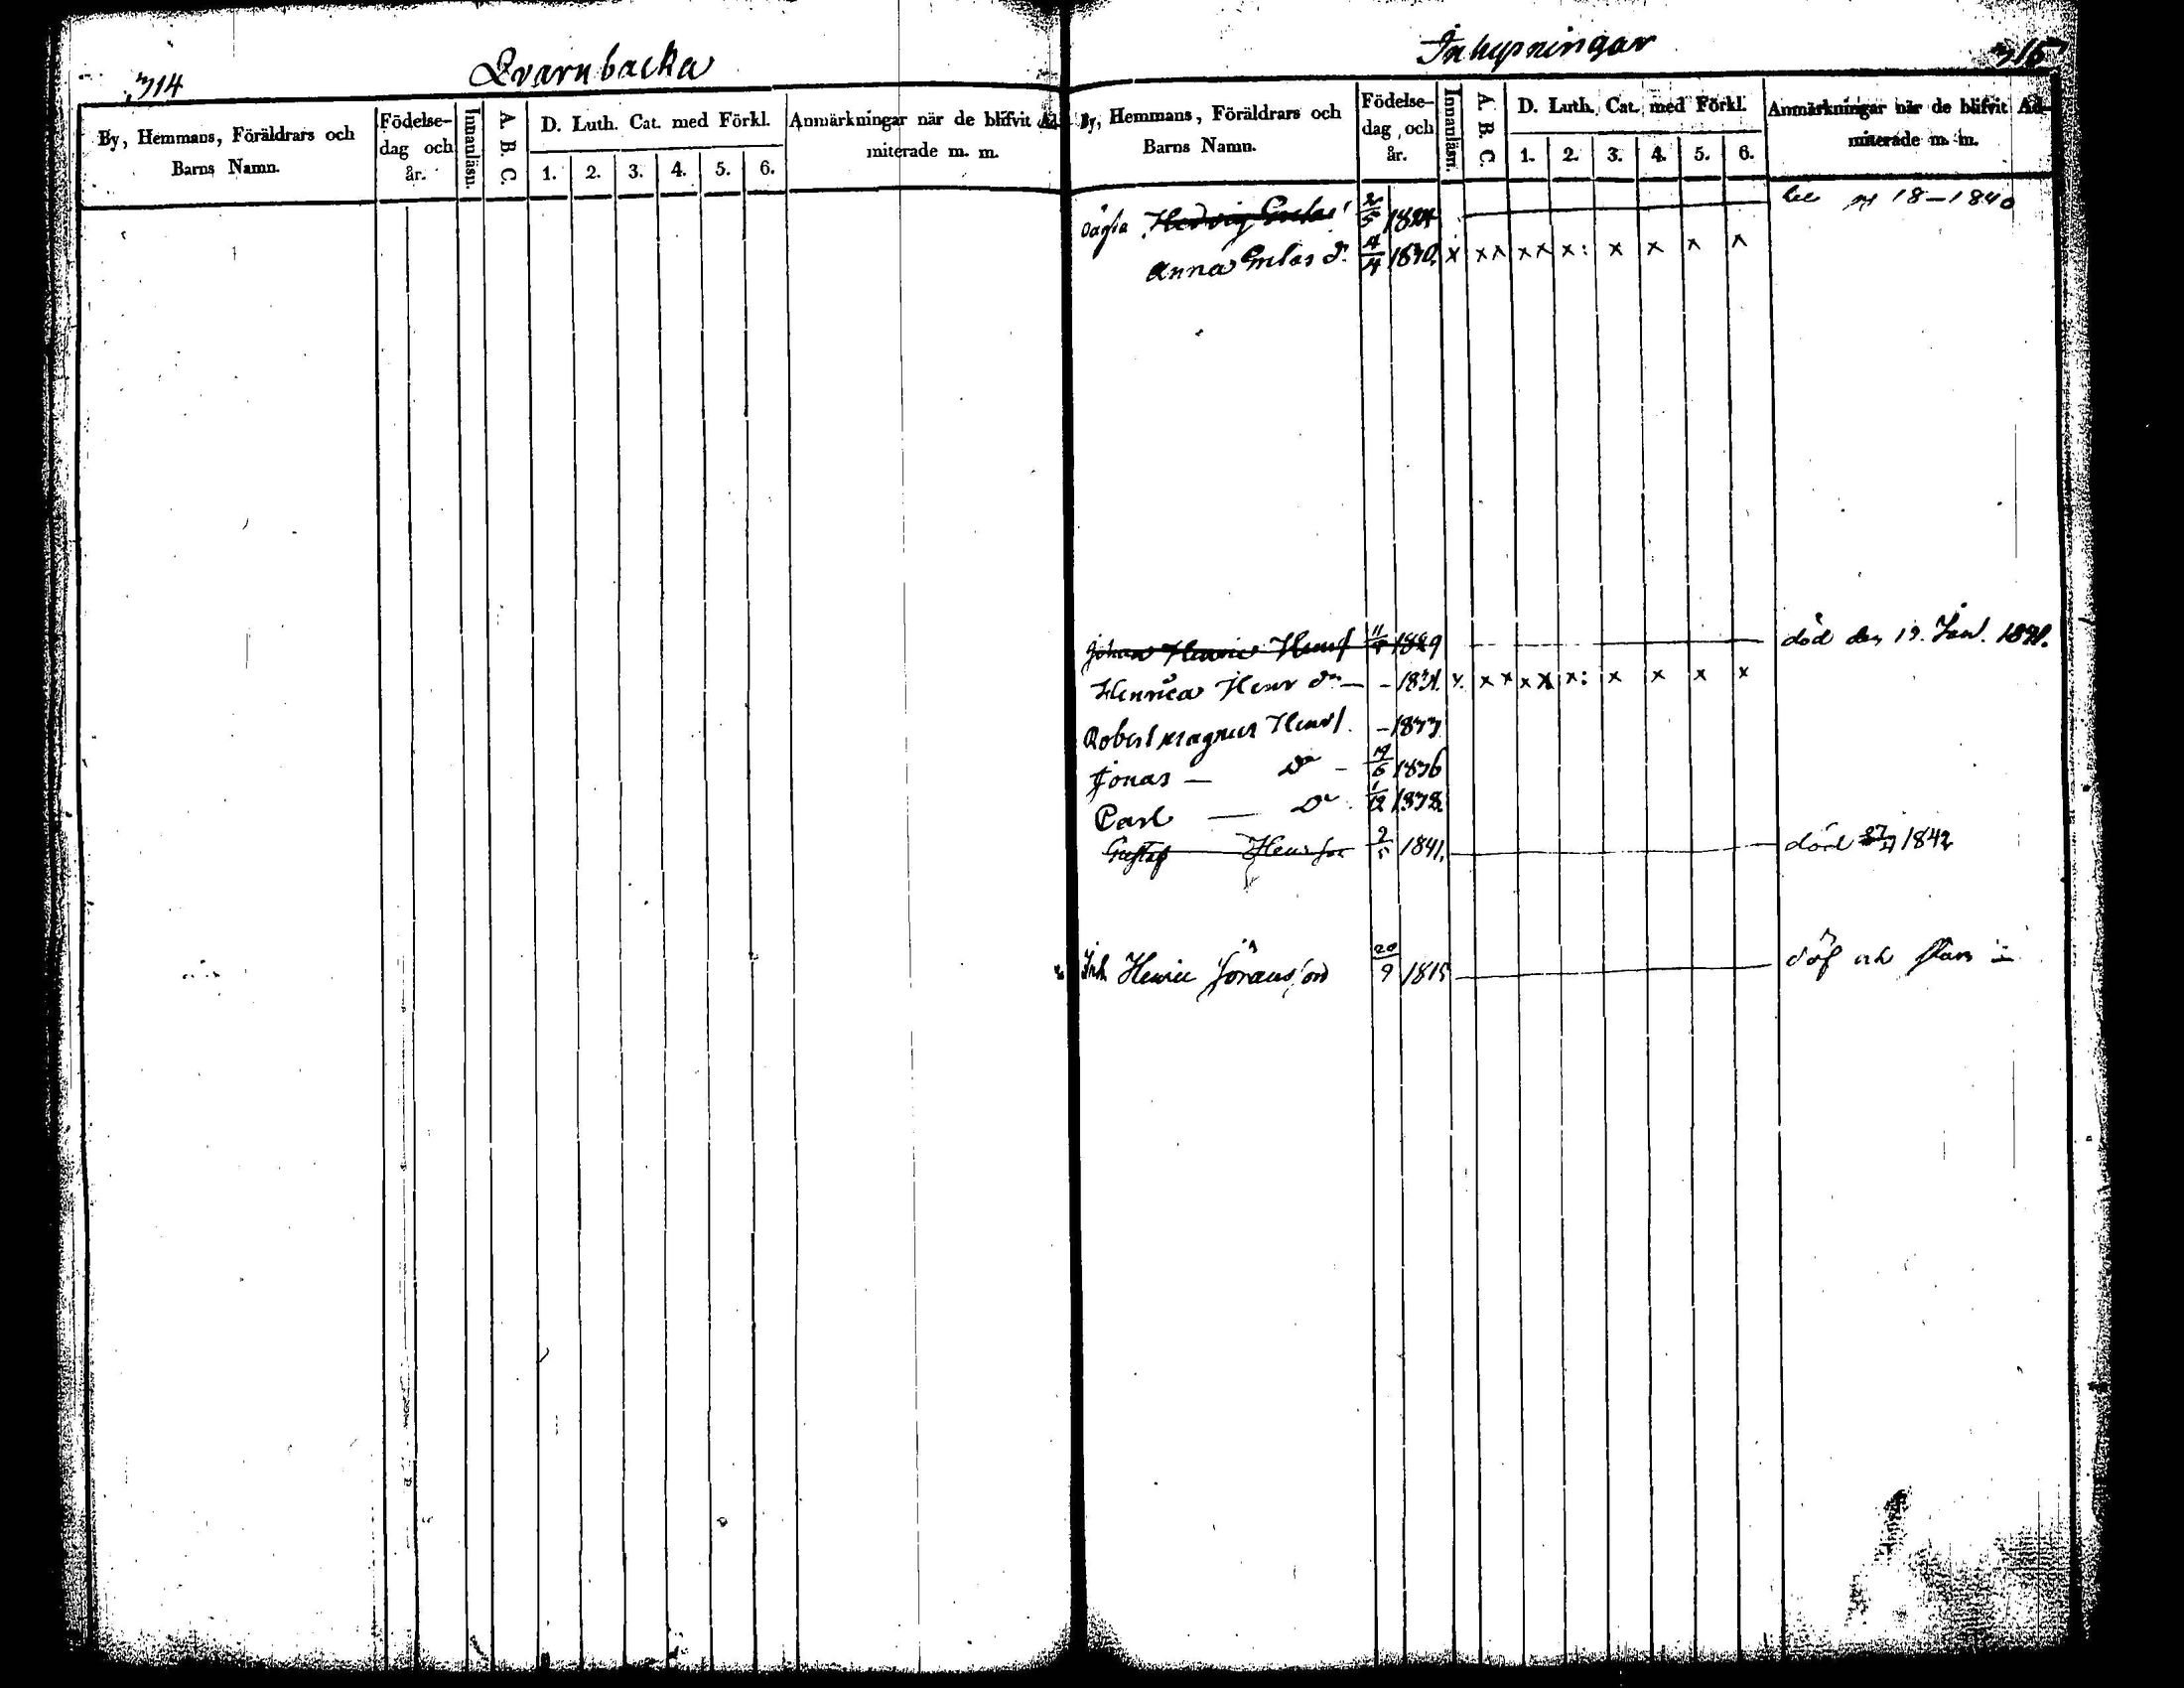 314
Qvarnbacka
By, Hemmans, Föräldrars och Barns Namn.
Födelse-dag och år.
Innanläsn.
A. B. C.
D. Luth. Cat. med Förkl.
1. 2. 3. 4. 5. 6.
Anmärkningar när de blifvit Ad-
miterade m. m.
Inhysningar
315
By, Hemmans, Föräldrars och Barns Namn.
Födelse-dag och år.
Innanläsn.
A. B. C.
D. Luth. Cat. med Förkl.
1. 2. 3. 4. 5. 6.
Anmärkningar när de blifvit Ad-
miterade m. m.
Hedvig 1824 18-1840
Anna 4/4 1830. x xx xx x: x x x x
Johan Henric Henrs 1829 död den 19. Jan. 1841.
Henrica Henr dr — - 1831. x. x x x x x: x x x x
Robert Magnus Henrs. - 1833
Jonas — Do - 19/6 1836
Carl — Do. 1/12 1838.
Gustaf Henrsson 2/5 1841. död 1842
Inh. Henric Göransson 20/9 1815 döf och